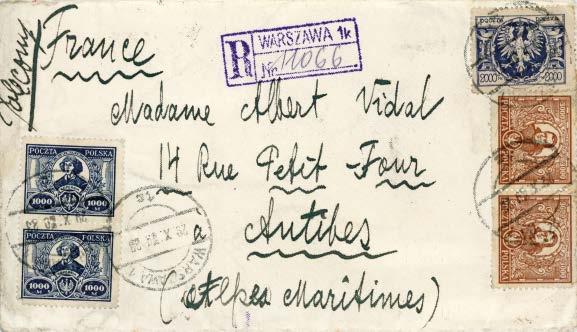 Polecony
France
R WARSZAWA 1k
Nr. 11066
Madame Albert Vidal
14 Rue Petit-Four
a Antibes
(Alpes Maritimes)
POCZTA POLSKA
1000 1000
POCZTA POLSKA
1000 1000
2000 2000
WARSZAWA 1